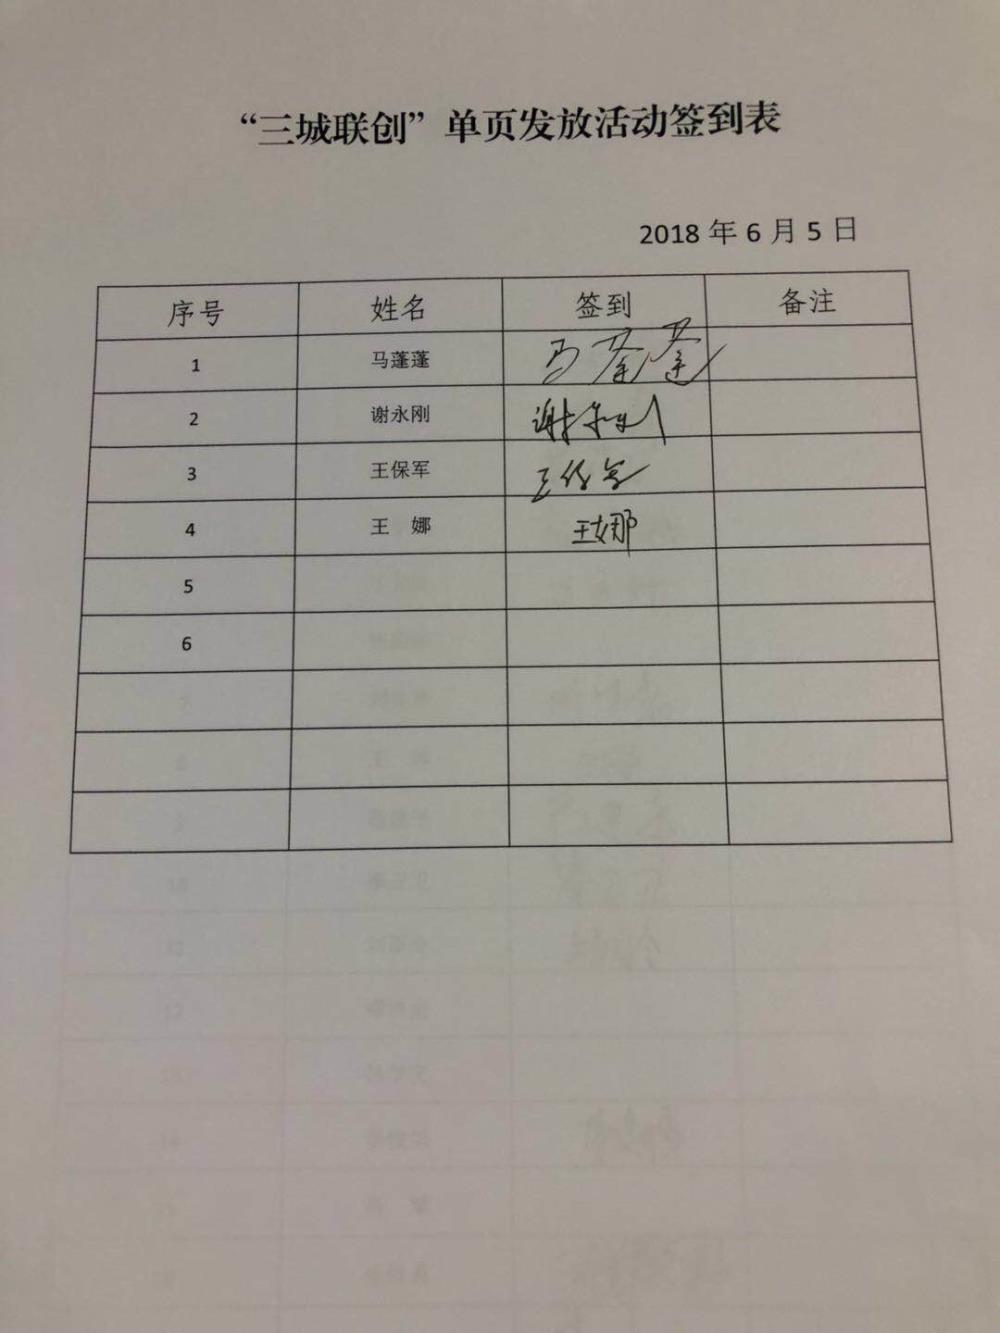 “三城联创”单页发放活动签到表
2018 年 6 月 5 日
序号 姓名 签到 备注
1 马蓬蓬 马蓬蓬
2 谢永刚 谢永刚
3 王保军 王保军
4 王 娜 王娜
5
6